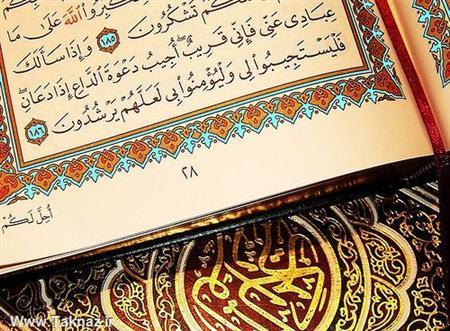 اللَّهَ عَلَىٰ مَا
تَشْكُرُونَ ١٨٥ وَإِذَا سَأَلَكَ
عِبَادِي عَنِّي فَإِنِّي قَرِيبٌ أُجِيبُ دَعْوَةَ الدَّاعِ إِذَا دَعَانِ
فَلْيَسْتَجِيبُوا۟ لِي وَلْيُؤْمِنُوا۟ بِي لَعَلَّهُمْ يَرْشُدُونَ ١٨٦
٢٨
أُحِلَّ لَكُمْ
www.Taknaz.ir